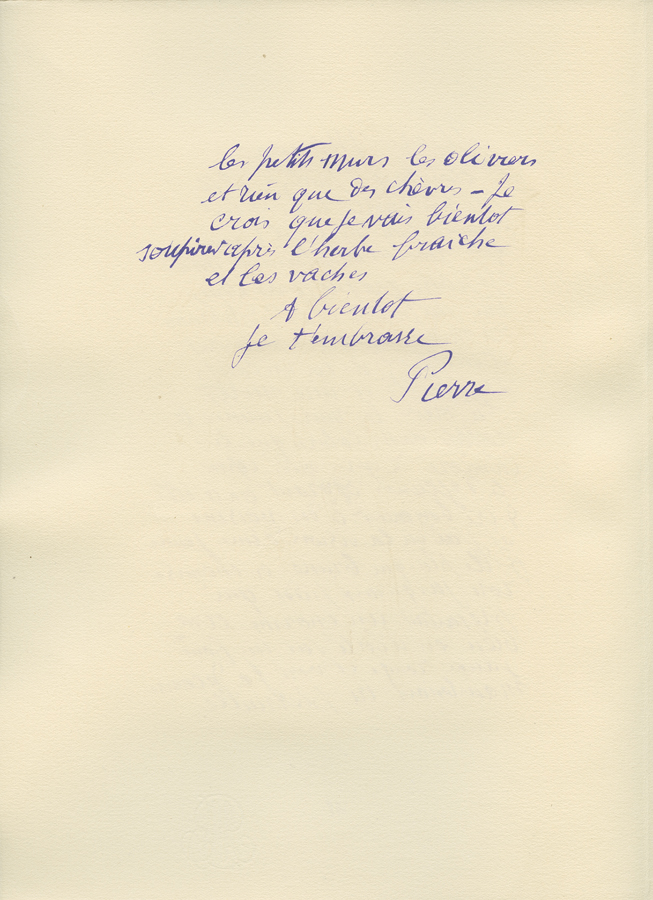 les petits murs les oliviers
et rien que des chèvres – Je
crois que je vais bientot
soupirer après l'herbe fraiche
et les vaches
A bientot
Je t'embrasse
Pierre